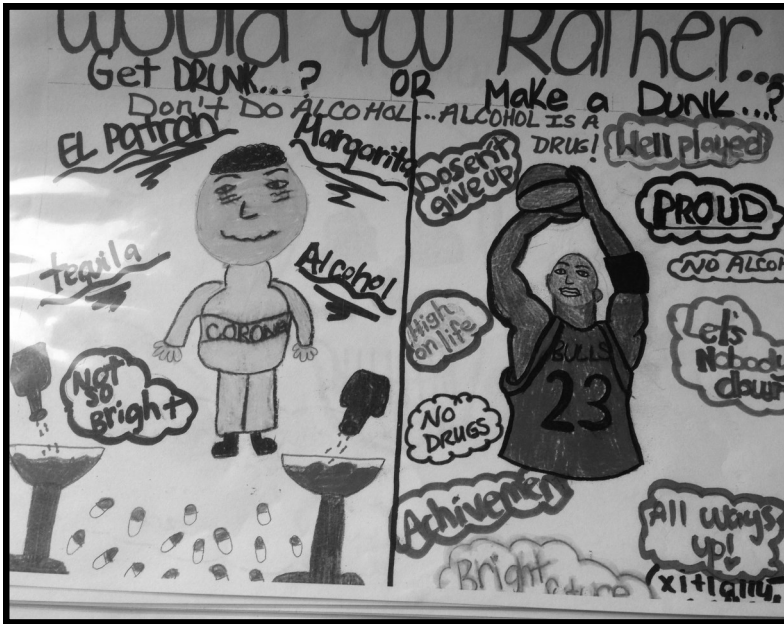 Would You Rather...
Get DRUNK...? OR Make a DUNK...?
Don't Do ALCOHOL...ALCOHOL IS A
DRUG!
EL PATRON
Margarita
Tequila
Alcohol
CORONA
Not
so
Bright
Dosen't
give up
Well played
PROUD
NO ALCOH
High
on life
Let's
Nobody
down
BULLS
23
NO
DRUGS
Achivemen
All ways
up!
Bright
(xitlally